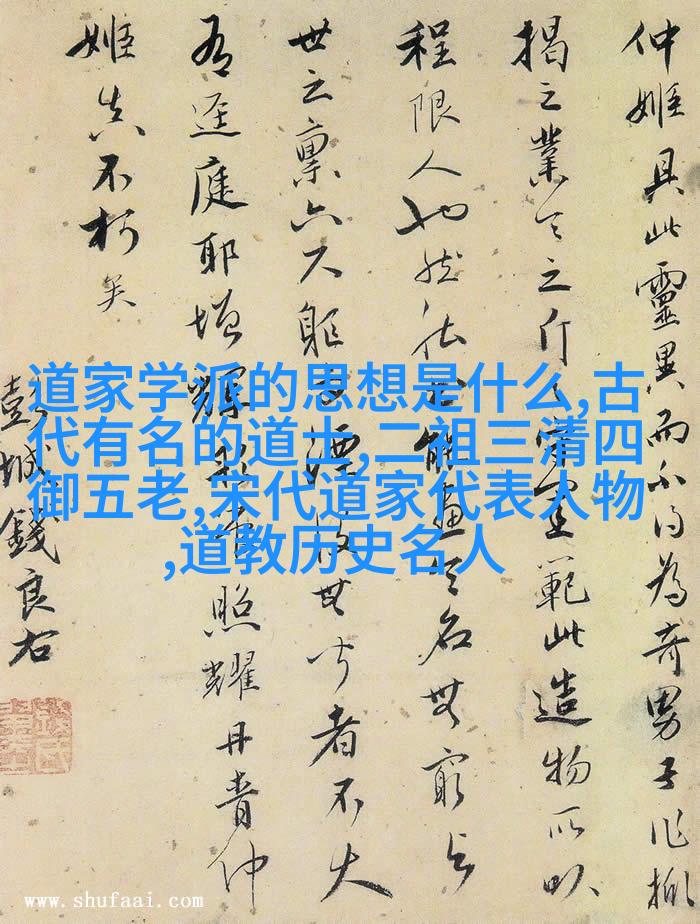 仲姬具此靈異而不得為奇男子作掀
揭之業天之斤範此造物所以
程限人也然名無窮與
世之稟六尺軀無聞者不大
有逕庭耶增輝照耀丹青仲
姬真不朽矣
彭城錢良右
道家学派的思想是什么,古
代有名的道士,二祖三清四
御五老,宋代道家代表人物
,道教历史名人
www.shufaai.com